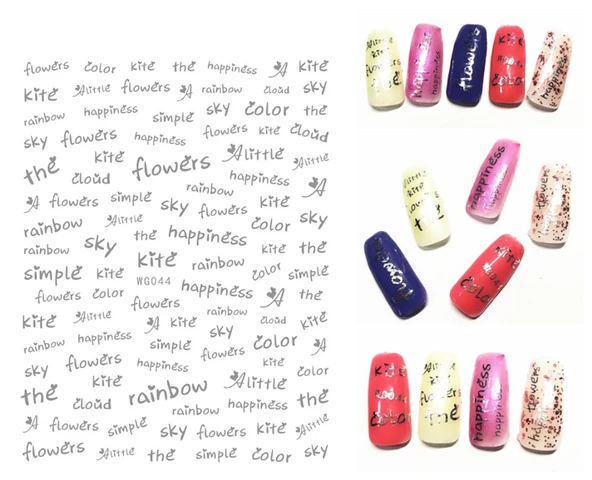 flowers color kite the happiness A kite
kite Alittle flowers A rainbow cloud sky
rainbow happiness simple sky color the
sky flowers happiness flowers kite cloud
the kite flowers Alittle Alittle
cloud rainbow happiness A
A flowers simple sky flowers kite
rainbow Alittle color sky
rainbow sky the happiness kite the
simple kite kite rainbow color simple
WG044
flowers color flowers happiness A the
kite Alittle A kite sky cloud kite
rainbow happiness sky color A
sky flowers happiness flowers kite color
the kite rainbow Alittle kite
cloud rainbow happiness the
A flowers simple sky flowers kite Alittle
flowers Alittle the simple color sky
Alittle
kite
flowers
the
happiness
happiness
flowers
kite
color
happiness
Alittle
kite
flowers
happiness
happiness
flowers
flowers
kite
color
kite
color
Alittle
kite
flowers
the
happiness
happiness
flowers